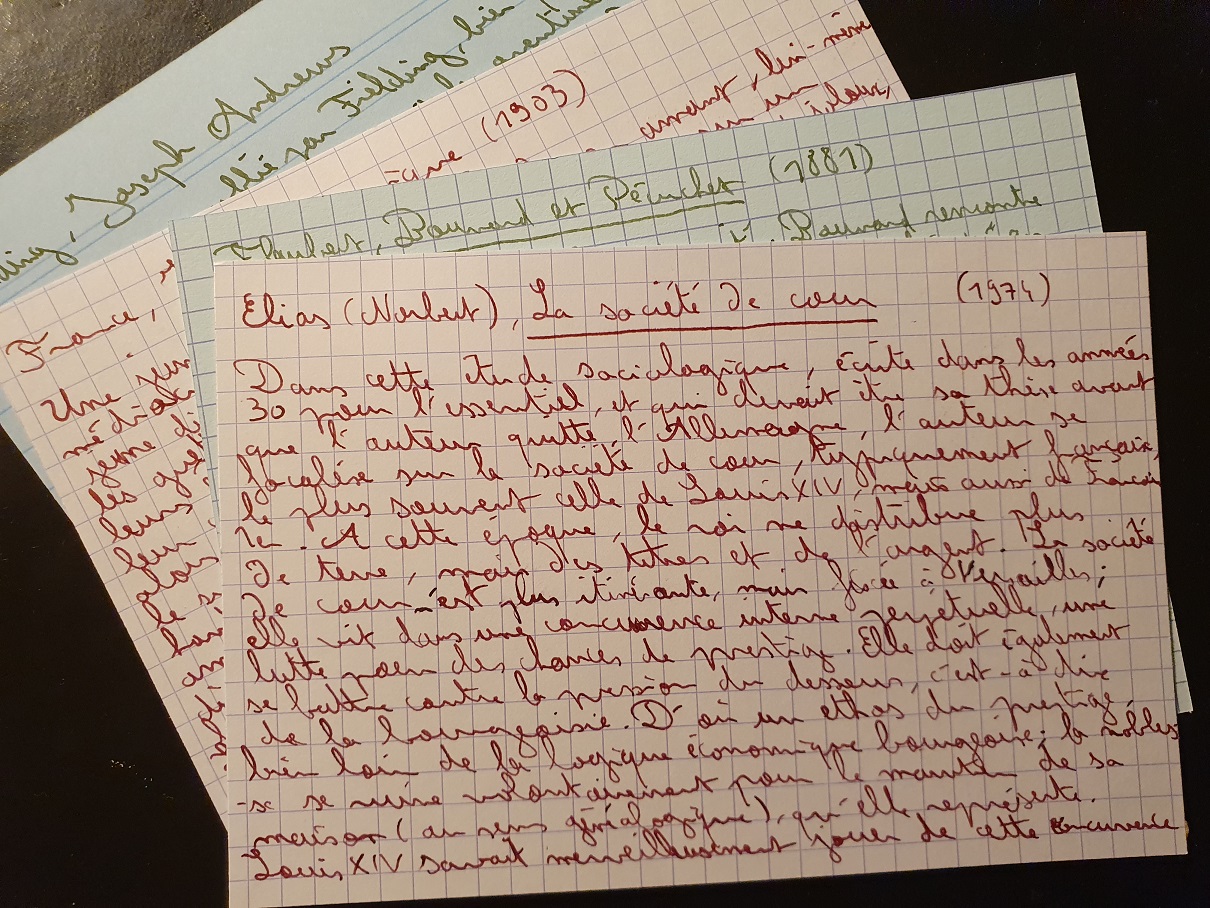 Joseph Andrews
par Fielding, bien
(1903)
amant, lui-même
Flaubert, Bouvard et Pécuchet (1881)
Bouvard rencontre
France,
Une
les
leurs
leur
alors
Elias (Norbert), La société de cour (1974)
Dans cette étude sociologique, écrite dans les années
30 pour l'essentiel, et qui devait être sa thèse avant
que l'auteur quitte l'Allemagne, l'auteur se
focalise sur la société de cour, typiquement française,
le plus souvent celle de Louis XIV, mais aussi de François
1er. A cette époque, le roi ne distribue plus
de terre, mais des titres et de l'argent. La société
de cour n'est plus itinérante, mais fixée à Versailles ;
elle vit dans une concurrence interne perpétuelle, une
lutte pour des chances de prestige. Elle doit également
se battre contre la pression du dessous, c'est-à-dire
de la bourgeoisie. D'où un ethos du prestige
bien loin de la logique économique bourgeoise ; la nobles
-se se ruine volontairement pour le maintien de sa
maison (au sens généalogique), qu'elle représente.
Louis XIV savait merveilleusement jouer de cette concurrence